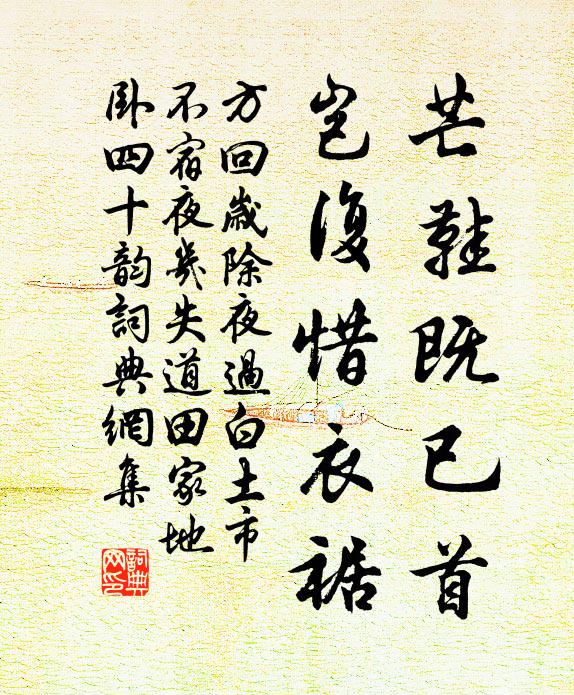 芒鞋既已首
岂復惜衣裾
方回歲除夜過白土市
不宿夜幾失道田家地
卧四十韵詞典網集
詞典網印